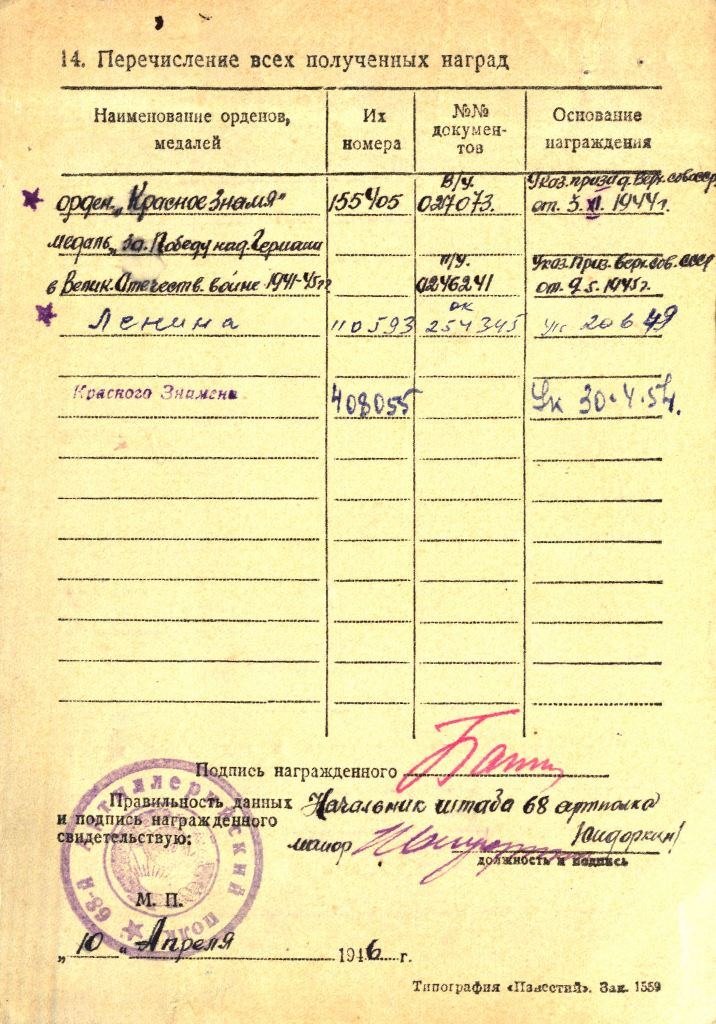 14. Перечисление всех полученных наград
Наименование орденов, медалей
Их номера
№№ докумен-тов
Основание награждения
орден „Красное Знамя" 155405 В/у. 027073. Указ. през. д. Верх. сов. ссср от. 3. XI. 1944г.
медаль „За. Победу над. Германи
в Велик. Отечеств. войне 1941-45гг П/У. 0246241 Указ. През. Верх. Сов. ссср от. 9.5. 1945г.
Ленина 110593 ок 254345 ук 20 6 49
Красного Знамени 408055 Ук 30.4.54.
Подпись награжденного
Правильность данных
и подпись награжденного
свидетельствую:
Начальник штаба 68 артполка
майор /Сидоркин/
должность и подпись
68-й Артиллерийский полк
М. П.
„10" Апреля 1946 г.
Типография «Известий». Зак. 1559